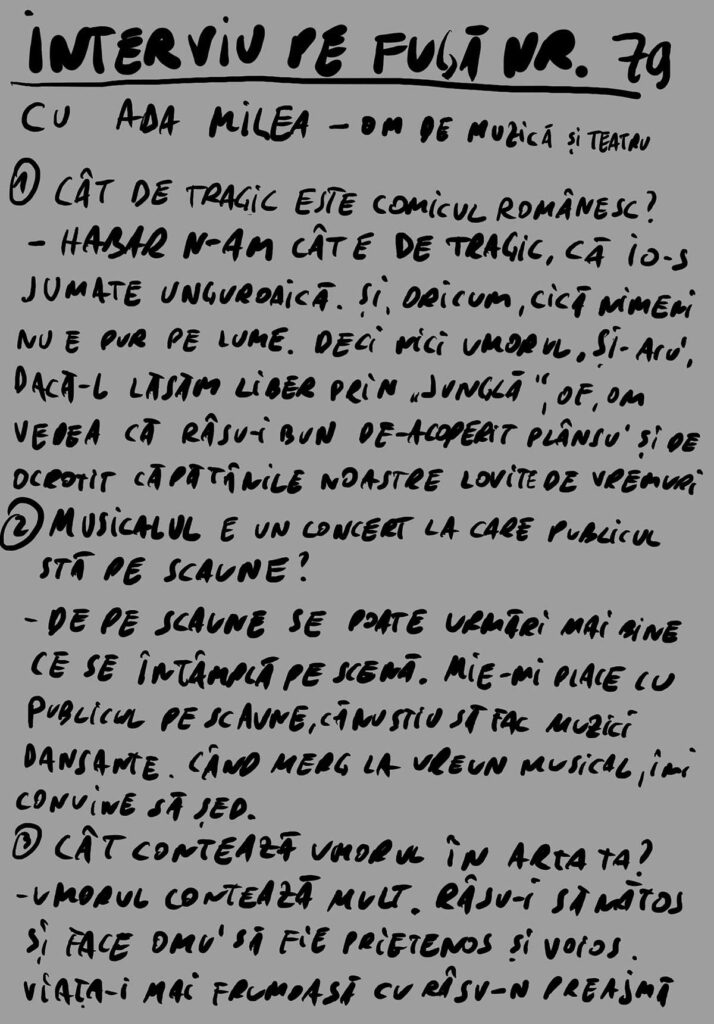 INTERVIU PE FUGĂ NR. 79
CU ADA MILEA – OM DE MUZICĂ ȘI TEATRU
① CÂT DE TRAGIC ESTE COMICUL ROMÂNESC?
– HABAR N-AM CÂT E DE TRAGIC, CĂ IO-S
JUMATE UNGUROAICĂ. ȘI, ORICUM, CICĂ NIMENI
NU E PUR PE LUME. DECI NICI UMORUL. ȘI-ACU',
DACĂ-L LĂSĂM LIBER PRIN „JUNGLĂ", OF, OM
VEDEA CĂ RÂSU-I BUN DE-ACOPERIT PLÂNSU' ȘI DE
OCROTIT CĂPĂȚÂNILE NOASTRE LOVITE DE VREMURI
② MUSICALUL E UN CONCERT LA CARE PUBLICUL
STĂ PE SCAUNE?
– DE PE SCAUNE SE POATE URMĂRI MAI BINE
CE SE ÎNTÂMPLĂ PE SCENĂ. MIE-MI PLACE CU
PUBLICUL PE SCAUNE, CĂ NU ȘTIU SĂ FAC MUZICI
DANSANTE. CÂND MERG LA VREUN MUSICAL, ÎMI
CONVINE SĂ ȘED.
③ CÂT CONTEAZĂ UMORUL ÎN ARTA TA?
– UMORUL CONTEAZĂ MULT. RÂSU-I SĂNĂTOS
ȘI FACE OMU' SĂ FIE PRIETENOS ȘI VOIOS.
VIAȚA-I MAI FRUMOASĂ CU RÂSU-N PREAJMĂ